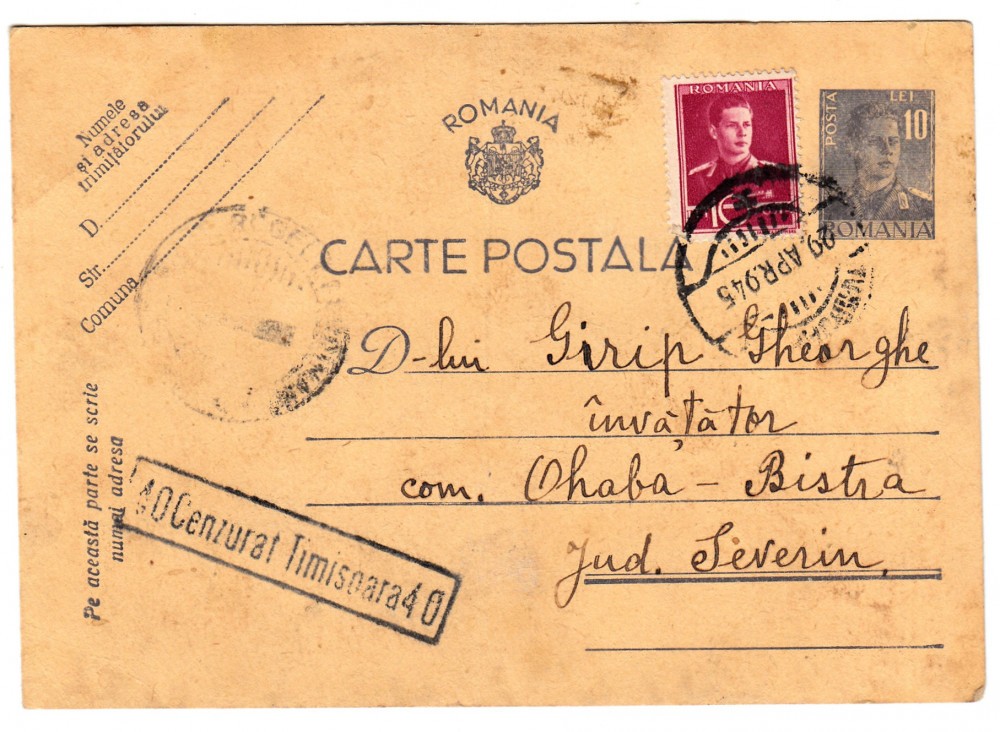 Numele
și adresa
trimițătorului
D.
Str.
Comuna
ROMANIA
CARTE POSTALA
ROMANIA
POSTA
LEI
10
ROMANIA
29 APR 945
D-lui Girip Gheorghe
învățător
com. Ohaba - Bistra
Jud. Severin,
Pe această parte se scrie
numai adresa
40 Cenzurat Timisoara 40